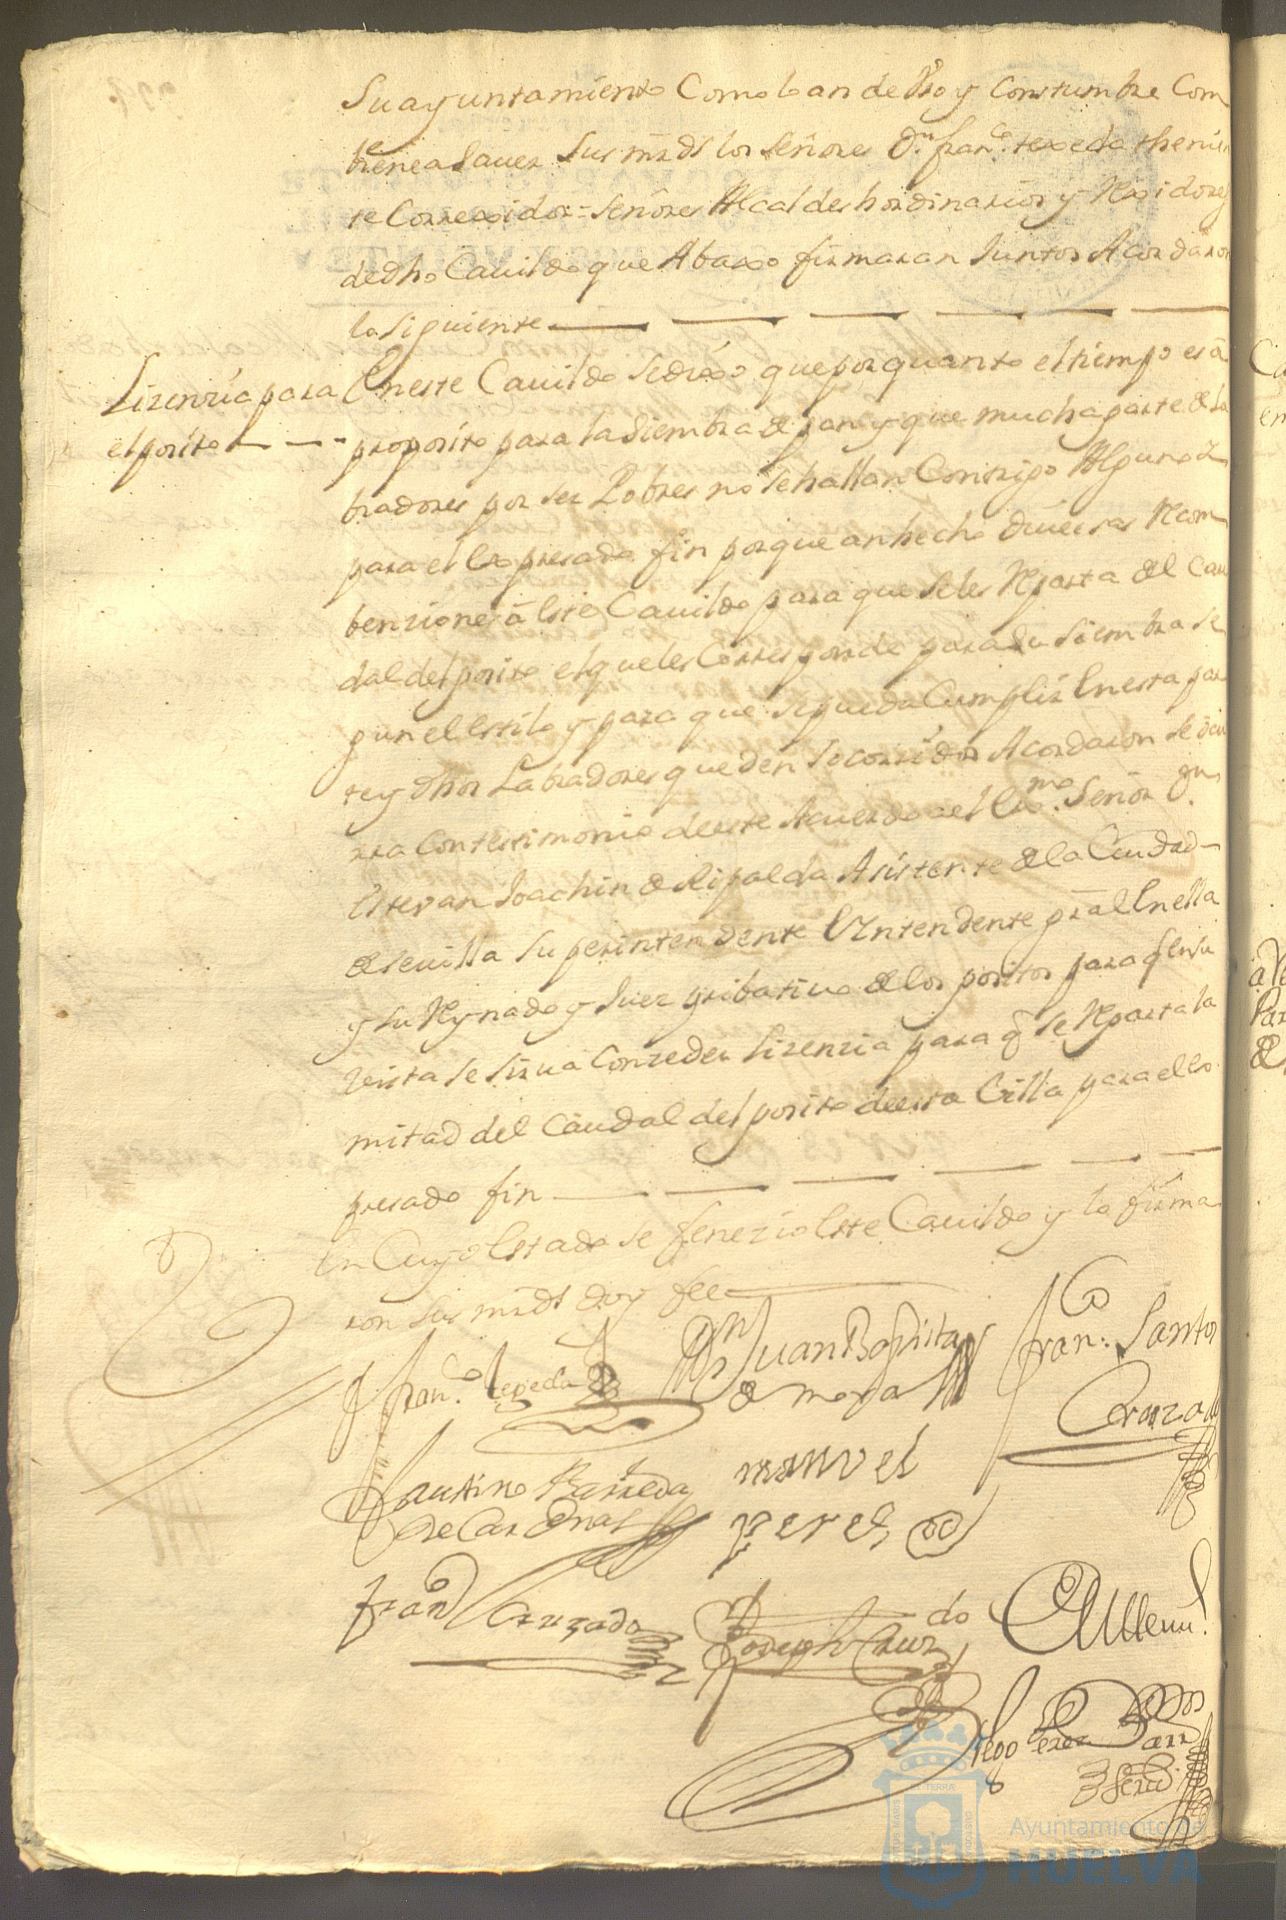 Su ayuntamiento Como lo an de Vso y Constumbre Com
biene a Sauer Sus mrds los Señores Dn. franco. texeda theni
te Correxidor = Señores Alcaldes hordinarios y Rexidores
de dho Cauildo que Abaxo firmaran Juntos Acordaron
lo Siguiente
Lizenzia para
el posito
Eneste Cauildo Se dixo que por quanto el tiempo es â
proposito para la Siembra de pan y que mucha parte de la
bradores por ser Pobres no se hallan Consigo Alguno
para el Expresado fin porque an hecho diuersas Recom
benziones â Este Cauildo para que Seles Reparta del Cau
dal del posito el que les Corresponde para su Siembra se
gun el Estilo y para que se pueda Cumplir En esta par
te y dhos Labradores queden Socorridos Acordaron se ocu
rra Con testimonio deeste Acuerdo ael Illmo. Señor Dn.
Estevan Joachin de Ripalda Asistente de la Ciudad
de seuilla Superintendente E Yntendente gral En ella
y su Reynado y Juez pribatiuo de los positos para q En su
vista se Sirua Conzeder Lizenzia para q se Reparta la
mitad del Caudal del posito deesta Villa para el Es
presado fin
En Cuyo Estado se fenezio Este Cauildo y lo firma
ron Sus mrds doy fee
franco. texeda
Dn Juan Baptista
de mora
fran: Santos
Cruzado
faustino Barreda
de Cardenas
manuel
peres
frando Cruzado
Joseph Cruzdo
Diego Perez
Ayuntamiento de
HUELVA